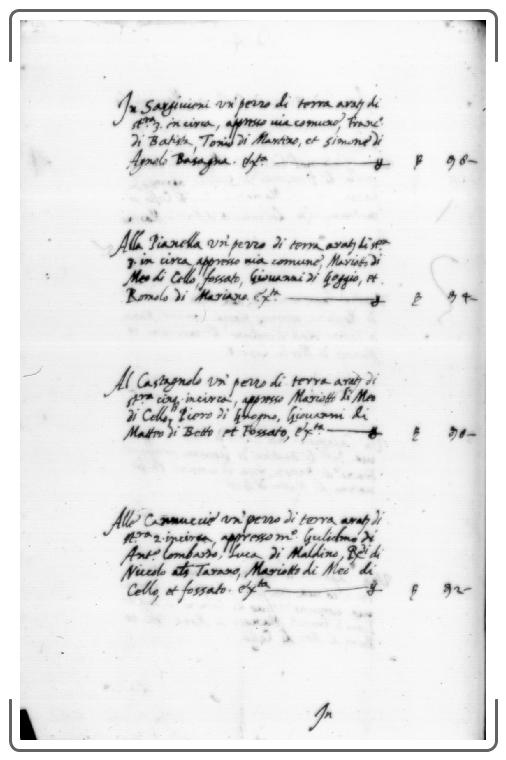 In Sargivieni un' pezzo di terra arat: di
st.ra 3. in circa, appresso via comune, Franc.o
di Batista, Tonio di Martino, et Simone di
Agnolo Basagna. &x.ta
Alla Pianella un' pezzo di terra arat: di st.ra
3. in circa appresso via comune, Mariot: di
Meo di Cello, fossato, Giovanni di Goggio, et
Romolo di Mariano &x.ta 94
Al Castagnolo un' pezzo di terra arat: di
st.ra cinq. incirca, appresso Mariotto di Meo
di Cello, Pierro di Guogno, Giovanni di
Matteo di Betto et Fossato, &x.ta 90
Alle Cannuccie un' pezzo di terra arat: di
st.ra 2. incirca, appresso m.o Gulielmo di
Ant.o lombardo, Luca di Maldino, di
Niccolo als Tarano, Mariotto di Meo di
Cello, et fossato. &x.ta 92
In